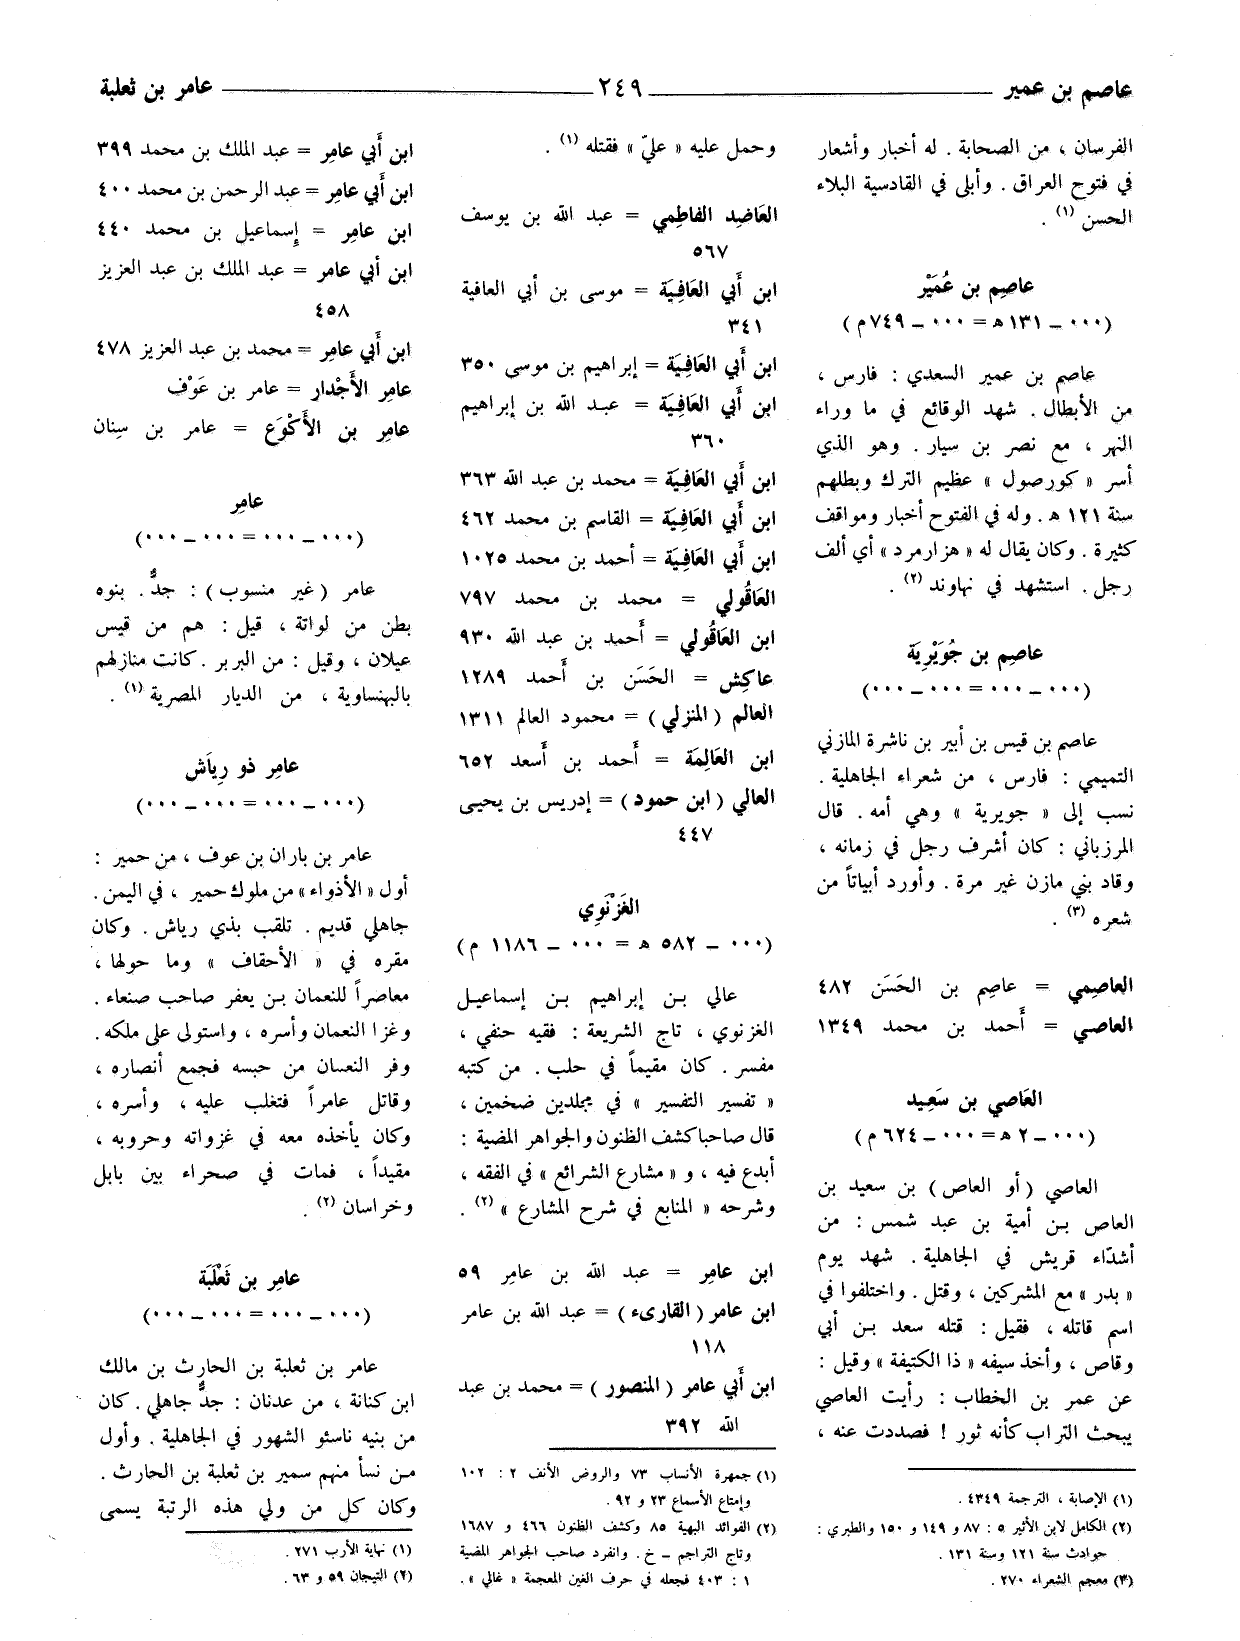 عاصم بن عمير ٢٤٩ عامر بن ثعلبة
الفرسان ، من الصحابة . له أخبار وأشعار
في فتوح العراق . وأبلى في القادسية البلاء
الحسن (١) .
عاصِم بن عُمَيْر
(٠٠٠ – ١٣١ هـ = ٠٠٠ – ٧٤٩ م)
عاصم بن عمير السعدي : فارس ،
من الأبطال . شهد الوقائع في ما وراء
النهر ، مع نصر بن سيار . وهو الذي
أسر « كورصول » عظيم الترك وبطلهم
سنة ١٢١ هـ . وله في الفتوح أخبار ومواقف
كثيرة . وكان يقال له « هزارمرد » أي ألف
رجل . استشهد في نهاوند (٢) .
عاصِم بن جُوَيْرِيَة
(٠٠٠ – ٠٠٠ = ٠٠٠ – ٠٠٠)
عاصم بن قيس بن أبير بن ناشرة المازني
التميمي : فارس ، من شعراء الجاهلية .
نسب إلى « جويرية » وهي أمه . قال
المرزباني : كان أشرف رجل في زمانه ،
وقاد بني مازن غير مرة . وأورد أبياتاً من
شعره (٣) .
العاصِمي = عاصِم بن الحَسَن ٤٨٢
العاصي = أحمد بن محمد ١٣٤٩
العَاصي بن سَعِيد
(٠٠٠ – ٢ هـ = ٠٠٠ – ٦٢٤ م)
العاصي (أو العاص) بن سعيد بن
العاص بن أمية بن عبد شمس : من
أشدّاء قريش في الجاهلية . شهد يوم
« بدر » مع المشركين ، وقتل . واختلفوا في
اسم قاتله ، فقيل : قتله سعد بن أبي
وقاص ، وأخذ سيفه « ذا الكتيفة » وقيل :
عن عمر بن الخطاب : رأيت العاصي
يبحث التراب كأنه ثور ! فصددت عنه ،
(١) الإصابة ، الترجمة ٤٣٤٩ .
(٢) الكامل لابن الأثير ٥ : ٨٧ و ١٤٩ و ١٥٠ والطبري :
حوادث سنة ١٢١ وسنة ١٣١ .
(٣) معجم الشعراء ٢٧٠ .
وحمل عليه « عليّ » فقتله (١) .
العَاضِد الفاطِمي = عبد الله بن يوسف
٥٦٧
ابن أَبي العَافِيَة = موسى بن أبي العافية
٣٤١
ابن أَبي العَافِيَة = إبراهيم بن موسى ٣٥٠
ابن أَبي العَافِيَة = عبد الله بن إبراهيم
٣٦٠
ابن أَبي العَافِيَة = محمد بن عبد الله ٣٦٣
ابن أَبي العَافِيَة = القاسم بن محمد ٤٦٢
ابن أَبي العَافِيَة = أحمد بن محمد ١٠٢٥
العَاقُولي = محمد بن محمد ٧٩٧
ابن العَاقُولي = أَحمد بن عبد الله ٩٣٠
عاكِش = الحَسَن بن أَحمد ١٢٨٩
العالم (المنزلي) = محمود العالم ١٣١١
ابن العَالِمَة = أَحمد بن أَسعد ٦٥٢
العالي (ابن حمود) = إدريس بن يحيى
٤٤٧
الغَزْنَوِي
(٠٠٠ – ٥٨٢ هـ = ٠٠٠ – ١١٨٦ م)
عالي بن إبراهيم بن إسماعيل
الغزنوي ، تاج الشريعة : فقيه حنفي ،
مفسر . كان مقيماً في حلب . من كتبه
« تفسير التفسير » في مجلدين ضخمين ،
قال صاحبا كشف الظنون والجواهر المضية :
أبدع فيه ، و « مشارع الشرائع » في الفقه ،
وشرحه « المنابع في شرح المشارع » (٢) .
ابن عامِر = عبد الله بن عامِر ٥٩
ابن عامر (القارىء) = عبد الله بن عامر
١١٨
ابن أَبي عامر (المنصور) = محمد بن عبد
الله ٣٩٢
(١) جمهرة الأنساب ٧٣ والروض الأنف ٢ : ١٠٢
وإمتاع الأسماع ٢٣ و ٩٢ .
(٢) الفوائد البهية ٨٥ وكشف الظنون ٤٦٦ و ١٦٨٧
وتاج التراجم – خ . وانفرد صاحب الجواهر المضية
١ : ٤٠٣ فجعله في حرف الغين المعجمة « غالي » .
ابن أَبي عامِر = عبد الملك بن محمد ٣٩٩
ابن أَبي عامِر = عبد الرحمن بن محمد ٤٠٠
ابن عامِر = إسماعيل بن محمد ٤٤٠
ابن أبي عامر = عبد الملك بن عبد العزيز
٤٥٨
ابن أَبي عامِر = محمد بن عبد العزيز ٤٧٨
عامِر الأَجْدار = عامر بن عَوْف
عامِر بن الأَكْوَع = عامر بن سِنان
عامِر
(٠٠٠ – ٠٠٠ = ٠٠٠ – ٠٠٠)
عامر (غير منسوب) : جدٌّ . بنوه
بطن من لواتة ، قيل : هم من قيس
عيلان ، وقيل : من البربر . كانت منازلهم
بالبهنساوية ، من الديار المصرية (١) .
عامِر ذو رِيَاش
(٠٠٠ – ٠٠٠ = ٠٠٠ – ٠٠٠)
عامر بن باران بن عوف ، من حمير :
أول « الأذواء » من ملوك حمير ، في اليمن .
جاهلي قديم . تلقب بذي رياش . وكان
مقره في « الأحقاف » وما حولها ،
معاصراً للنعمان بن يعفر صاحب صنعاء .
وغزا النعمان وأسره ، واستولى على ملكه .
وفر النعمان من حبسه فجمع أنصاره ،
وقاتل عامراً فتغلب عليه ، وأسره ،
وكان يأخذه معه في غزواته وحروبه ،
مقيداً ، فمات في صحراء بين بابل
وخراسان (٢) .
عامِر بن ثَعْلَبَة
(٠٠٠ – ٠٠٠ = ٠٠٠ – ٠٠٠)
عامر بن ثعلبة بن الحارث بن مالك
ابن كنانة ، من عدنان : جدٌّ جاهلي . كان
من بنيه ناسئو الشهور في الجاهلية . وأول
من نسأ منهم سمير بن ثعلبة بن الحارث .
وكان كل من ولي هذه الرتبة يسمى
(١) نهاية الأرب ٢٧١ .
(٢) التيجان ٥٩ و ٦٣ .